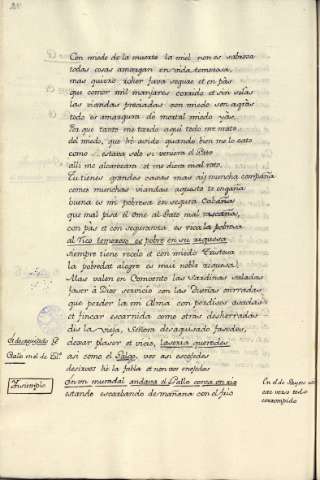 Con miedo de la muerte la miel non es sabrosa
todas cosas amargan en vida temerosa,
mas quiero roher fava seguro et en pás
que comer mil manjares corrido et sin solás
las viandas preciadas con miedo son agrás
todo es amargura do mortal miedo yás.
Por que tanto me tardo aqui todo me mato
del miedo, que hé avido quando bien me lo cato
como estava solo si veniera el Gato
alli me alcanzara et me diera mal rato.
Tu tienes grandes casas mas ay mucha compaña
comes munchas viandas aquesto te engaña
buena es mi pobresa en segura Cabaña
que mal pisa el Ome al Gato mal rascaña,
con pás et con seguransa es rica la pobresa
al Rico temeroso es pobre en su riquesa
siempre tiene recelo et con miedo tristesa
la pobredat alegre es mui noble riquesa.
Mas valen en Convento las Sardinas saladas
faser á Dios servicio con las Dueñas onrradas
que perder la mi Alma con perdises asadas
et fincar escarnida como otras desherradas
dis la Vieja, Señora desaguisado fasedes,
dexar plaser et vicio, laseria queredes
asi como el Gallo vos asi escogedes
desirvos hé la fabla et non vos enojedes
andava el Gallo cerca un rio
estando escarbando de mañana con el frio
Gallo
Enxemplo
En el de